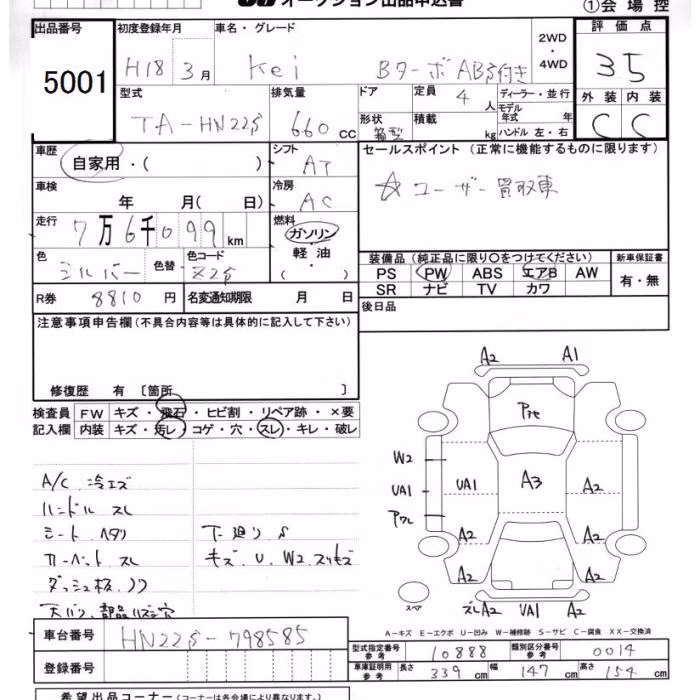 オークション出品申込書 ①会場控
出品番号 初度登録年月 車名・グレード 2WD・4WD 評価点
5001 H18 3月 Kei Bターボ ABS付き 35
型式 排気量 ドア 定員 4人 ディーラー・並行 外装 内装
TA-HN22S 660cc 形状 箱型 積載 kg モデル年式 年 ハンドル 左・右 C C
車歴 自家用・( ) シフト AT セールスポイント (正常に機能するものに限ります)
車検 年 月( 日) 冷房 AC ☆ユーザー買取車
走行 7万6千099km 燃料 ガソリン・軽油・( )
色 シルバー 色替 色コード Z2S
装備品 (純正品に限り〇をつけてください) 新車保証書
PS PW ABS エアB AW 有・無
SR ナビ TV カワ
R券 8810円 名変通知期限 月 日 後日品
注意事項申告欄 (不具合内容等は具体的に記入して下さい)
修復歴 有 [箇所 ]
検査員 FW キズ・飛石・ヒビ割・リペア跡・×要
記入欄 内装 キズ・汚レ・コゲ・穴・スレ・キレ・破レ
A/C 冷エズ
ハンドル スレ
シート ヘタリ
カーペット スレ
ダッシュ板 ノリ
天バリ、部品ハズシ穴
下廻り S
キズ、U、W2、スリキズ
A2 A1
W2
UA1 UA1 A3 A2
A2 A2
A2 A2
スペア A2 UA1 A2
A-キズ E-エクボ U-凹み W-補修跡 S-サビ C-腐食 XX-交換済
車台番号 HN22S-798585
登録番号
型式指定番号 参考 10888 類別区分番号 参考 0014
車庫証明用 参考 長さ 339cm 幅 147cm 高さ 154cm
希望出品コーナー (コーナーは各会場により異なります。)